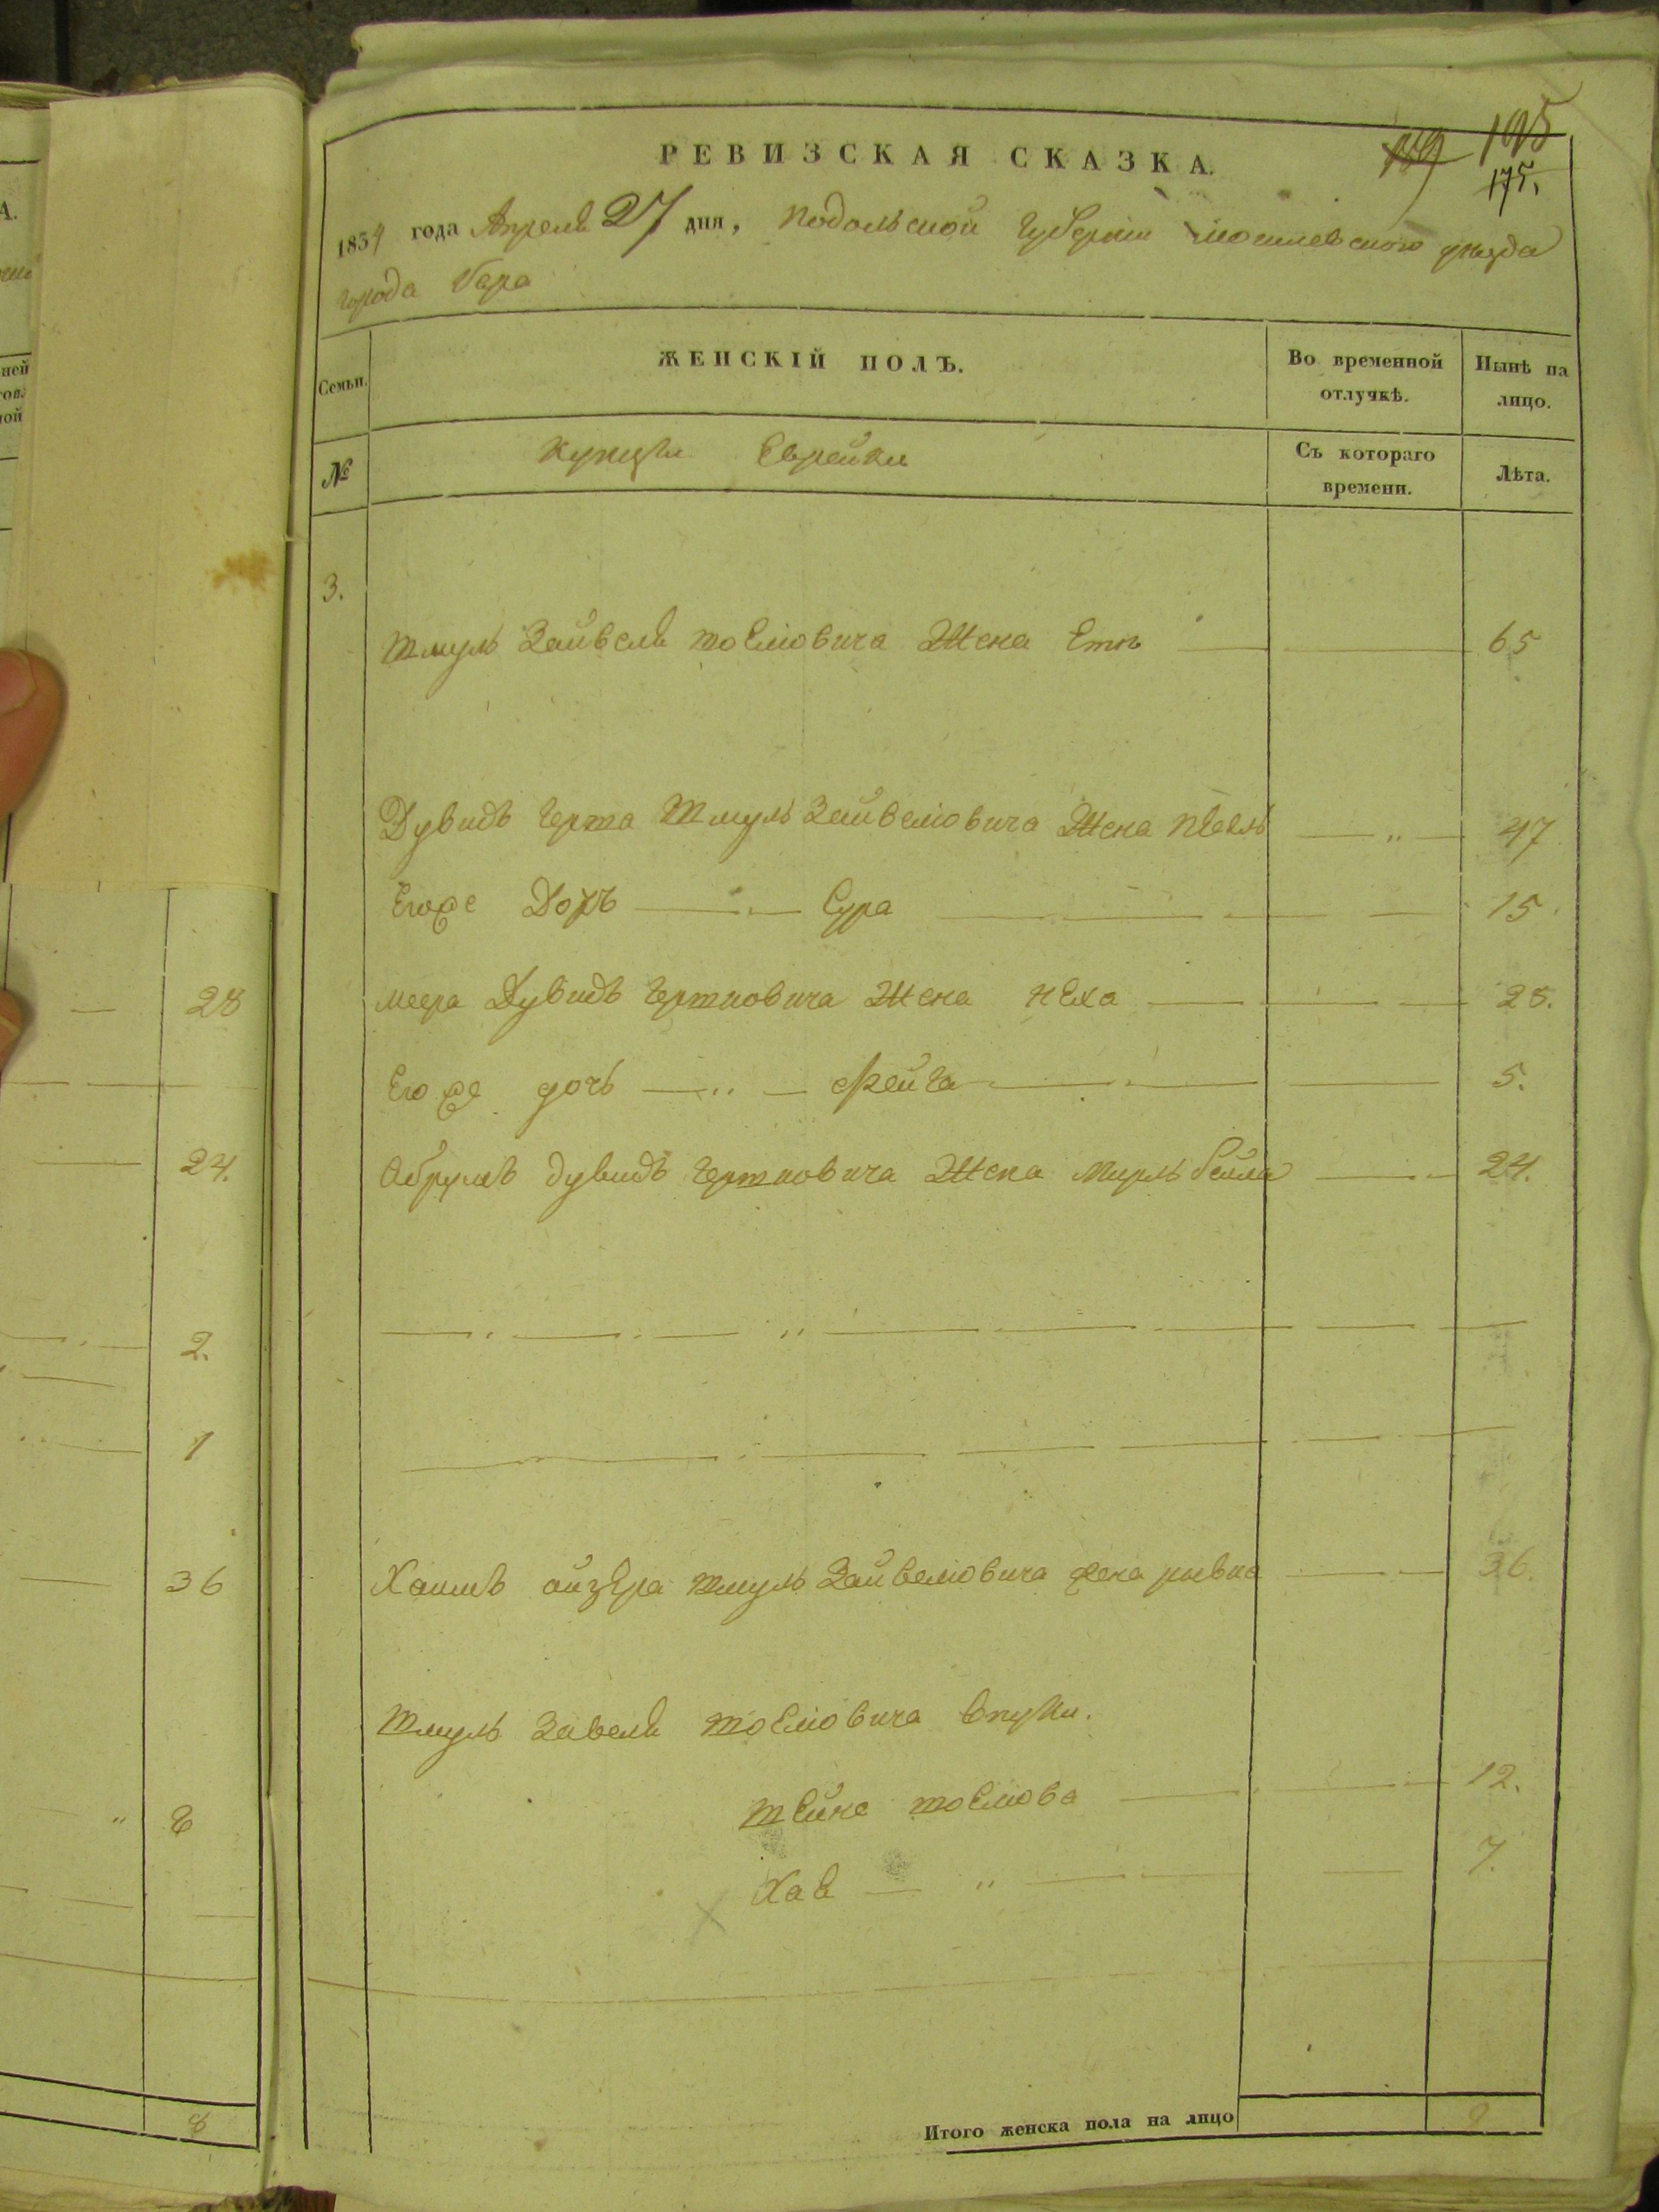 РЕВИЗСКАЯ СКАЗКА.
159 195
175.
1834 года Апреля 27 дня, Подольской Губернии Могилевского уезда
города Бара
Семьи.
ЖЕНСКІЙ ПОЛЪ.
Во временной отлучкѣ.
Нынѣ на лицо.
№
Купцы Еврейки
Съ котораго времени.
Лѣта.
3.
Шмуль Зайвель Жена 65
Дувидъ Герша Шмуль Зайвеловича Жена 47
Егоже Дочь Сура 15
меера Дувидъ Гершковича Жена Неха 25.
Его же дочь Фейга 5.
Абрумъ Дувидъ Гершковича Жена Мирль Бейла 24.
Хаимъ айзера Шмуль Зайвеловича жена ривка 36.
Шмуль Завель внуки.
Шейне 12.
Хава 7.
Итого женска пола на лицо 9
28
24.
2.
1
36
8
8